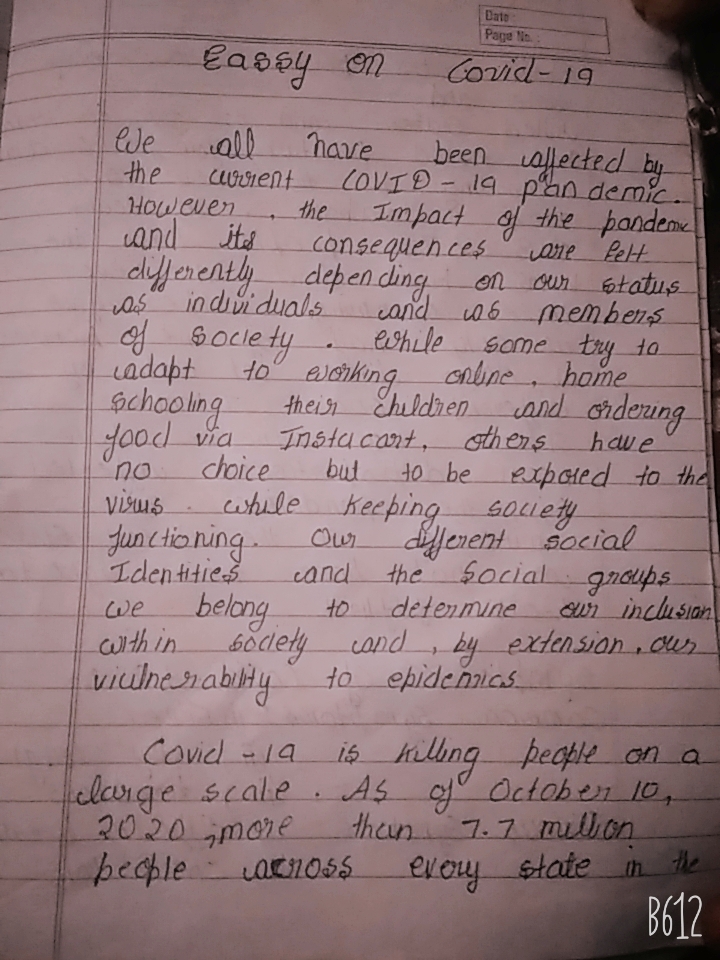 Date
Page No.
Eassy on Covid-19
We all have been affected by
the current COVID-19 pandemic.
However, the Impact of the pandemic
and its consequences are felt
differently depending on our status
as individuals and as members
of society. While some try to
adapt to working online, home
schooling their children and ordering
food via Instacart, others have
no choice but to be exposed to the
virus while keeping society
functioning. Our different social
Identities and the social groups
we belong to determine our inclusion
within society and, by extension, our
viulnerability to epidemics
Covid-19 is killing people on a
large scale. As of October 10,
2020, more than 7.7 million
people across every state in the
B612